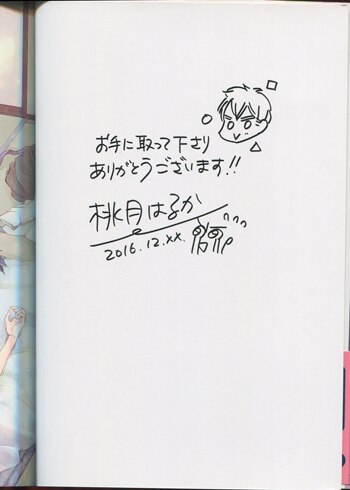 お手に取って下さり
ありがとうございます!!
桃月はるか
2016.12.xx.